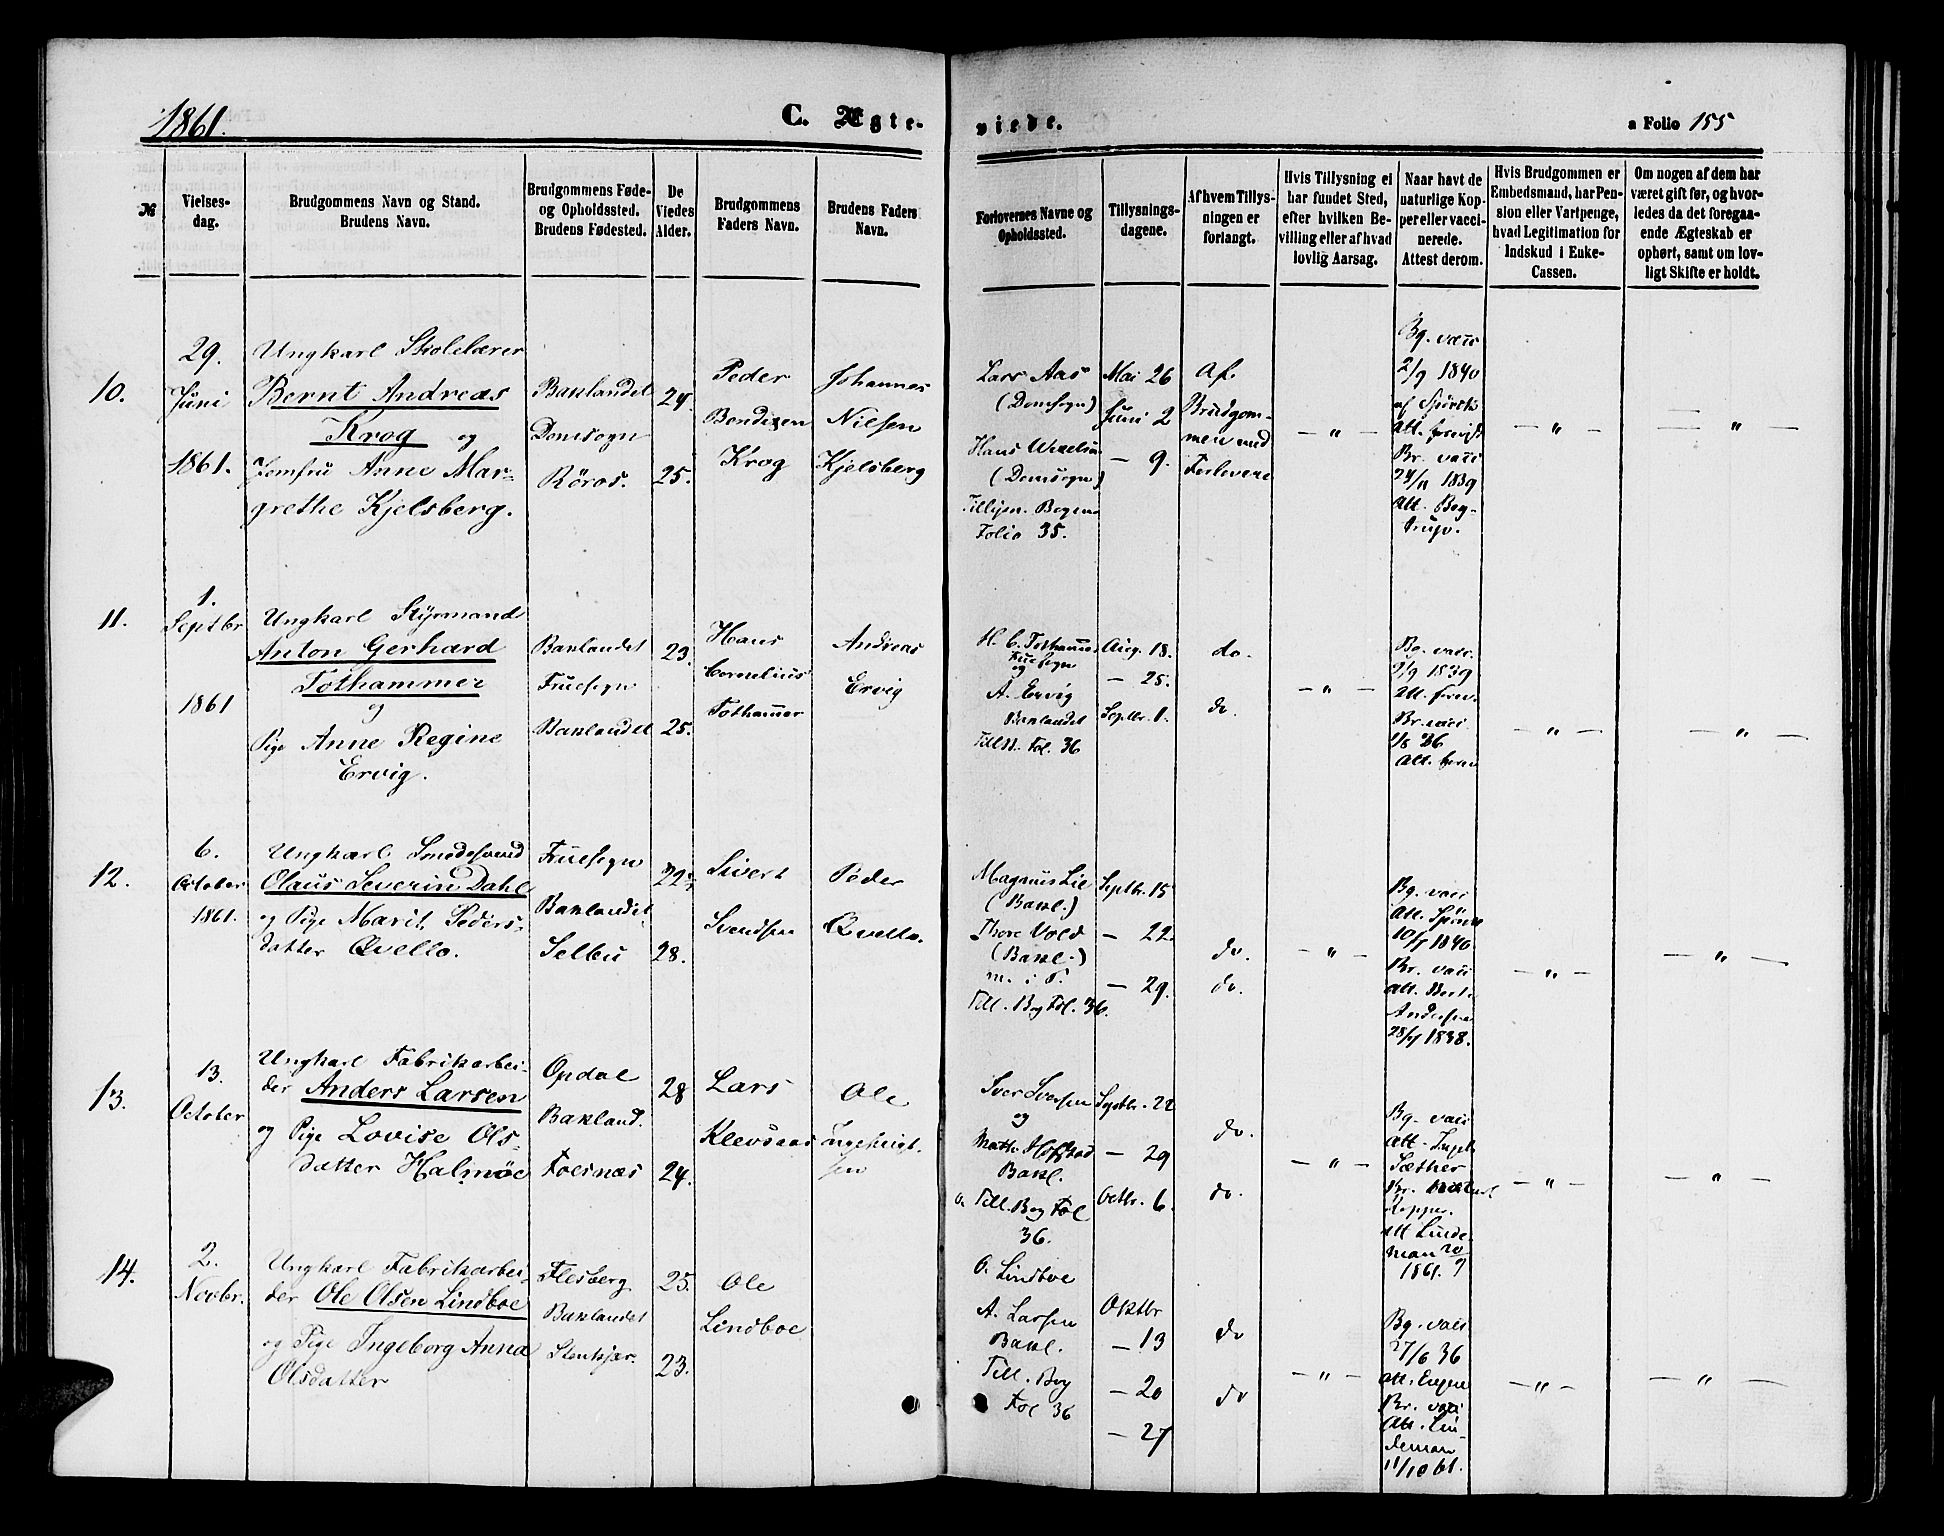 1861.
C. Ægte-
viede.
a Folio 155
№
Vielses-
dag.
Brudgommens Navn og Stand.
Brudens Navn.
Brudgommens Føde-
og Opholdssted.
Brudens Fødested.
De
Viedes
Alder.
Brudgommens
Faders Navn.
Brudens Faders
Navn.
Forlovernes Navne og
Opholdssted.
Tillysnings-
dagene.
Af hvem Tillys-
ningen er
forlangt.
Hvis Tillysning ei
har fundet Sted,
efter hvilken Be-
villing eller af hvad
lovlig Aarsag.
Naar havt de
naturlige Kop-
per eller vacci-
nerede.
Attest derom.
Hvis Brudgommen er
Embedsmand, har Pen-
sion eller Vartpenge,
hvad Legitimation for
Indskud i Enke-
Cassen.
Om nogen af dem har
været gift før, og hvor-
ledes da det foregaa-
ende Ægteskab er
ophørt, samt om lov-
ligt Skifte er holdt.
10.
29.
Juni
1861.
Ungkarl Skolelærer
Bernt Andreas
Krog og
Jomfru Anne Mar-
grethe Kjelsberg.
Baklandet
Domsogn
Röros.
24.
25.
Peder
Bendixen
Krog
Johannes
Nielsen
Kjelsberg
Lars Aas
(Domsogn)
Hans
(Domsogn)
Bogens
Folio 35.
Mai 26
Juni 2
— 9.
Af
Brudgom-
men med
Forlovere
— „ —
Bg. vacc
2/9 1840
af
Att. forevist
Br. vacc
24/11 1839
Att. Bog-
trup.
— „ —
— „ —
11.
1.
Septbr
1861
Ungkarl Styrmand
Anton Gerhard
Tothammer
og
Pige Anne Regine
Ervig.
Baklandet
Fruesogn
Baklandet
23.
25.
Hans
Cornelius
Tothammer
Andreas
Ervig
H. C. Tothammer
Fruesogn
og
A. Ervig
Baklandet
Fol. 36
Aug. 18.
— 25.
Septbr. 1.
do.
do.
— „ —
Bg. vacc.
2/9 1839
Att. forev.
Br. vacc
1/8 36
Att. forev
— „ —
— „ —
12.
6.
October
1861.
Ungkarl Smedesvend
Olaus Severin Dahl
og Pige Marit Peders-
datter Qvello.
Fruesogn
Baklandet
Selbu
22
28.
Sivert
Svendsen
Peder
Qvello.
Magnus Lie
(Bakl.)
Thore Vold
(Bakl.)
m. i P.
Till. Bog Fol. 36.
Septbr. 15
— 22.
— 29.
do.
do.
— „ —
Bg. vacc
Att.
10/7 1840.
Br. vacc
Att.
Andersen
28/7 1838.
— „ —
— „ —
13.
13.
October
Ungkarl Fabrikarbei-
der Anders Larsen
og Pige Lovise Ols-
datter Halmöe
Opdal
Bakland.
Foesnæs
28
24.
Lars
Klevsaas
Ole
Ingebrigt-
sen
Iver Iversen
og
Math. Hofstad
Bakl.
Till. Bog Fol
36.
Septbr. 22
— 29
Octbr. 6.
do.
do.
— „ —
Bg. vacc
Att.
Sæther
Br.
Kopper.
Att Linde-
man 20/9
1861.
— „ —
— „ —
14.
2.
Novbr.
Ungkarl Fabrikarbei-
der Ole Olsen Lindboe
og Pige Ingeborg Anna
Olsdatter
Flesberg
Baklandet
Stenkjær.
25.
23.
Ole
Lindboe
O. Lindboe
A. Larsen
Bakl.
Till. Bog
Fol 36
Oktbr
— 13
— 20
— 27
do
do
— „ —
Bg. vacc
27/6 36
Att.
Br. vacc
Att. Lin-
deman
11/10 61.
— „ —
— „ —